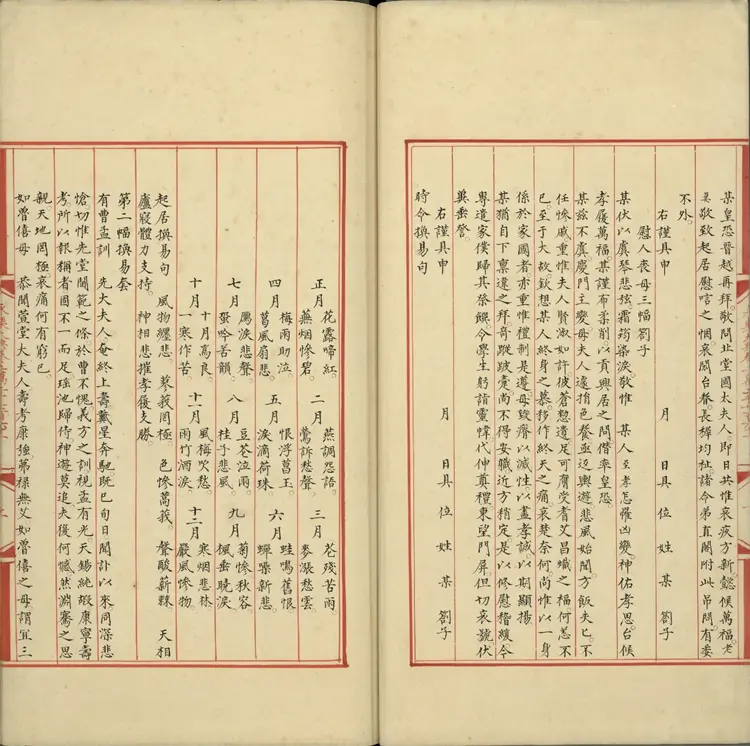 某皇恐晉越再拜敬問北堂國太夫人即日共惟哀疚方新懿候萬福老
某敬致起居慰唁之悃哀閤台眷長穉均祉諸令弟直閣附此弔問有委
不外
右謹具申
月 日具位姓某劄子
慰人喪母三幅劄子
某伏以虞琴悲弦霜筠染淚敬惟某人至孝怎罹凶變神佑孝思台候
孝履萬福某謹布柔削以貢興居之問僭率皇恐
某茲不虞慶門主變母夫人違捐色養亟返輿遊悲風始聞方飯失匕不
任慘戚重惟夫人賢淑如許彼蒼憖遺足可膺受耆艾昌熾之福何恙不
已至于大故欽想某人終身之慕移作終天之痛哀楚奈何尚惟以一身
係於家國者亦重惟禮制是遵毋致瘠以滅性以盡孝誠以期顯揚
某猶自下稟違之拜奇蹤跛虆尚不得妥職近方稍定是以修慰稽緩今
專遣家僕歸其柰錁令學生躬詣靈幃代伸奠禮東望門屏但切哀號伏
奠垂詧
右謹具申
月 日具位姓某劄子
時令換易句
正月 花露啼紅 蕪烟慘碧
二月 燕調怨語 鶯訴愁聲
三月 芲殘苦雨 麥漲愁雲
四月 梅雨助泣 葛風扇悲
五月 恨浮菖玉 淚滴荷珠
六月 蛙鳴舊恨 蟬噪新悲
七月 鴈淚悲聲 蛩吟苦韻
八月 豆芲泣雨 桂子悲風
九月 菊慘秋容 楓垂曉淚
十月 十月為良 一寒作苦
十一月 風梅吹愁 雨竹洒淚
十二月 寒烟悲林 嚴風慘物
起居換易句
風物纏悲 莪菽罔極 色慘蒿莪 聲酸薪粿 天相
廬寢體力支持 神相悲摧孝履支勝
第二幅換易套
有曹孟訓 先大夫人奄終上壽戴星奔馳既已旬日聞訃以來同深悲
愴切惟先堂閫範之條於曹不愧義方之訓視孟有光天錫純嘏康寧壽
考所以報稱者固不一而足瑤池歸侍神遊莫追夫復何憾然淵騫之思
親天地罔極哀痛何有窮已
如魯僖母 恭聞萱堂大夫人壽考康強茀祿無艾如魯僖之母謂宜三